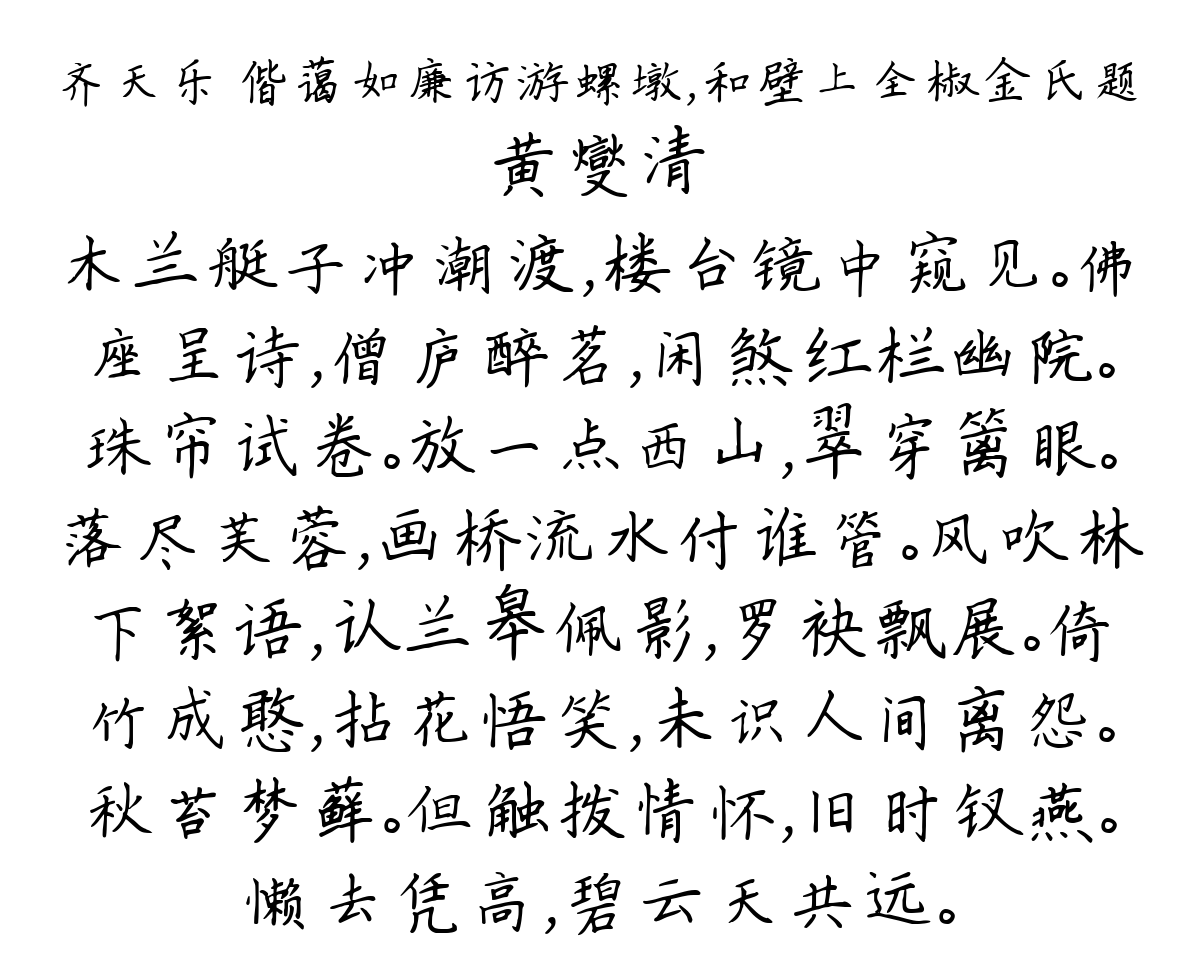 齐天乐 偕蔼如廉访游螺墩,和壁上全椒金氏题
黄燮清
木兰艇子冲潮渡,楼台镜中窥见。佛
座呈诗,僧庐醉茗,闲煞红栏幽院。
珠帘试卷。放一点西山,翠穿篱眼。
落尽芙蓉,画桥流水付谁管。风吹林
下絮语,认兰皋佩影,罗袂飘展。倚
竹成憨,拈花悟笑,未识人间离怨。
秋苔梦藓。但触拨情怀,旧时钗燕。
懒去凭高,碧云天共远。